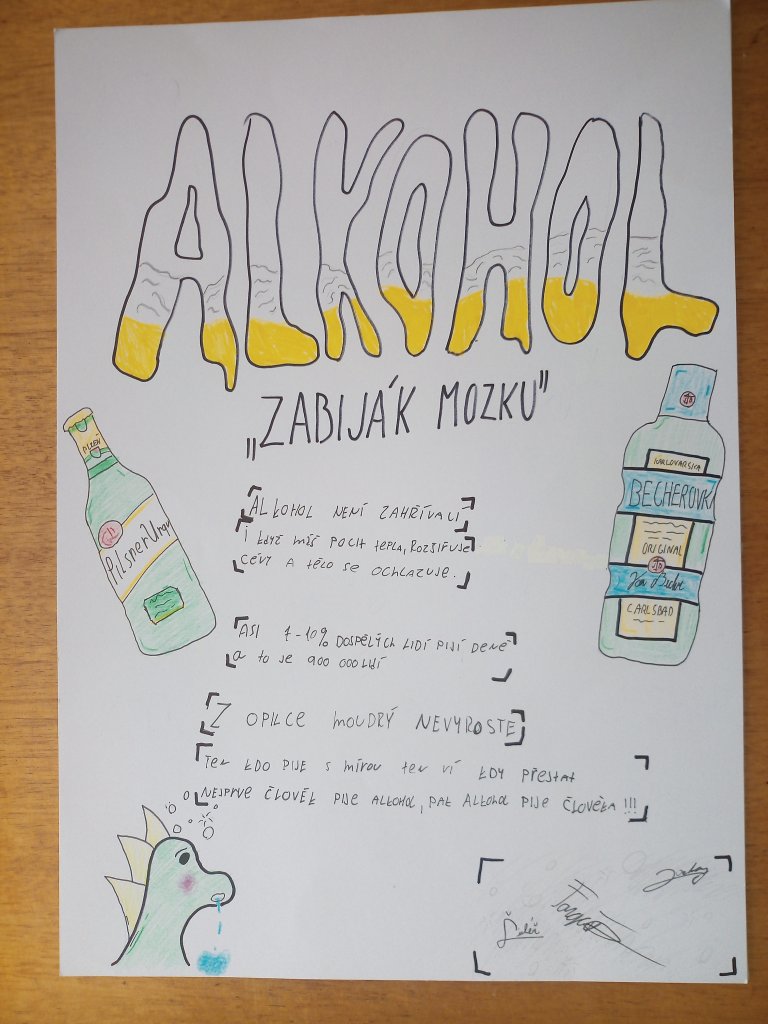 ALKOHOL
„ZABIJÁK MOZKU"
PLZEŇ
Pilsner Urqu
KARLOVARSKÁ
BECHEROVKA
ORIGINAL
Jan Becher
CARLSBAD
ALKOHOL NENÍ ZAHŘÍVACÍ
I KDYŽ MÁŠ POCIT TEPLA, ROZŠIŘUJE
CÉVY A TĚLO SE OCHLAZUJE.
ASI 7-10% DOSPĚLÝCH LIDÍ PIJÍ DENĚ
a to je 900 000 LIDÍ
Z OPILCE MOUDRÝ NEVYROSTE
Ten KDO PIJE S mírou ten ví KDY PŘESTAT
NEJPRVE ČLOVĚK PIJE ALKOHOL, PAK ALKOHOL PIJE ČLOVĚKA !!!